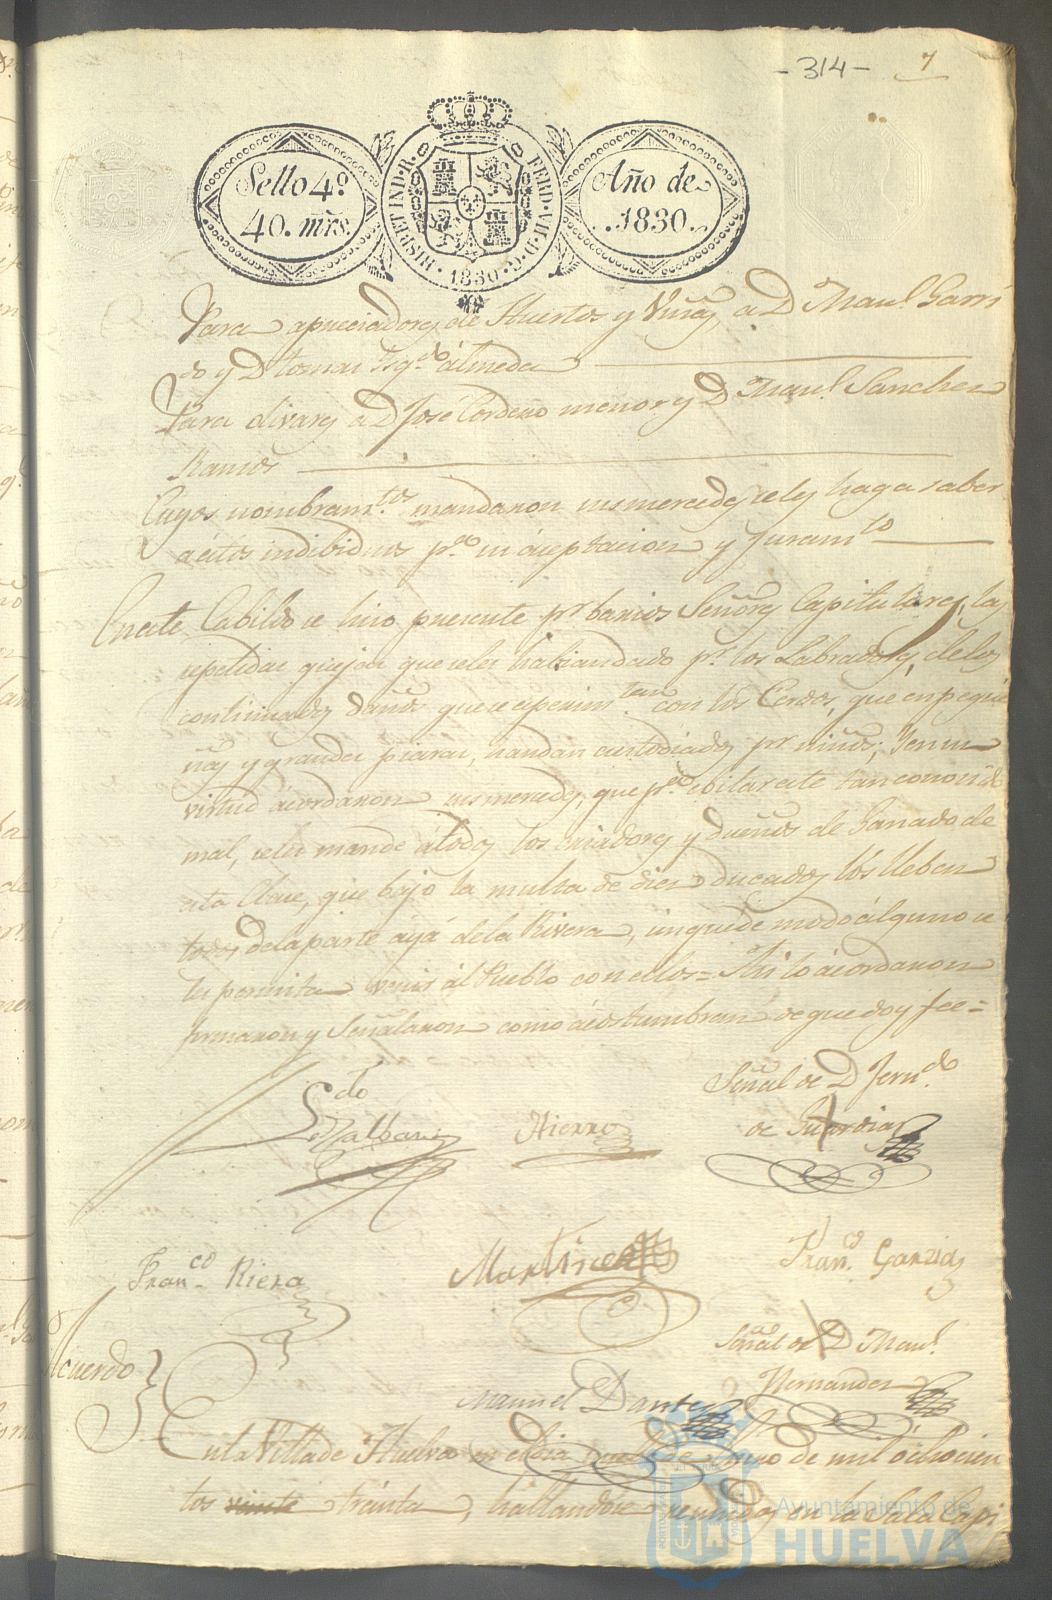 - 314 -
7
Sello 4º
40. mrs.
HISP. ET IND. R.
FERD. VII. D. G.
1830
Año de
1830.
Para apreciadores de Huertos y Viñas, a D Man.l Garri
do y D Tomas Almeda
Para olivares á D Jose Cordero menor y D Man.l Sanchez
Ramos
Cuyos nombram.tos mandaron sus mercedes se les haga saber
a estos indibiduos p.a su aceptacion y Juram.to
En este Cabildo se hizo presente p.r barios Señores Capitulares, las
repetidas quejas que se les han dado p.r los Labradores, de los
continuados daños que se esperim.tan con los Cerdos, que en peque
ñas y grandes piaras, handan custodiados p.r niños; Y en su
virtud ácordaron sus mercedes, que p.a ebitar este tan conocido
mal, se les mande átodos los criadores y dueños de Ganado de
esta Clase, que bajo la multa de diez ducados los lleben
todos dela parte ayá dela Rivera, sin que de modo álguno se
les permita venir ál Pueblo con ellos = Asi lo ácordaron
firmaron y Señalaron como ácostumbran de que doy fee =
L.do
Hierro
Señal de D Fern.do
de
Fran.co Riera
Martinez
Fran.co Garzia
Señal de D Man.l
Hernandez
Manuel Dante
Acuerdo
En la Villa de Huelva en el dia de de mil óchocien
tos veinte treinta, hallandose reunidos en la Sala Capi
Ayuntamiento de
HUELVA